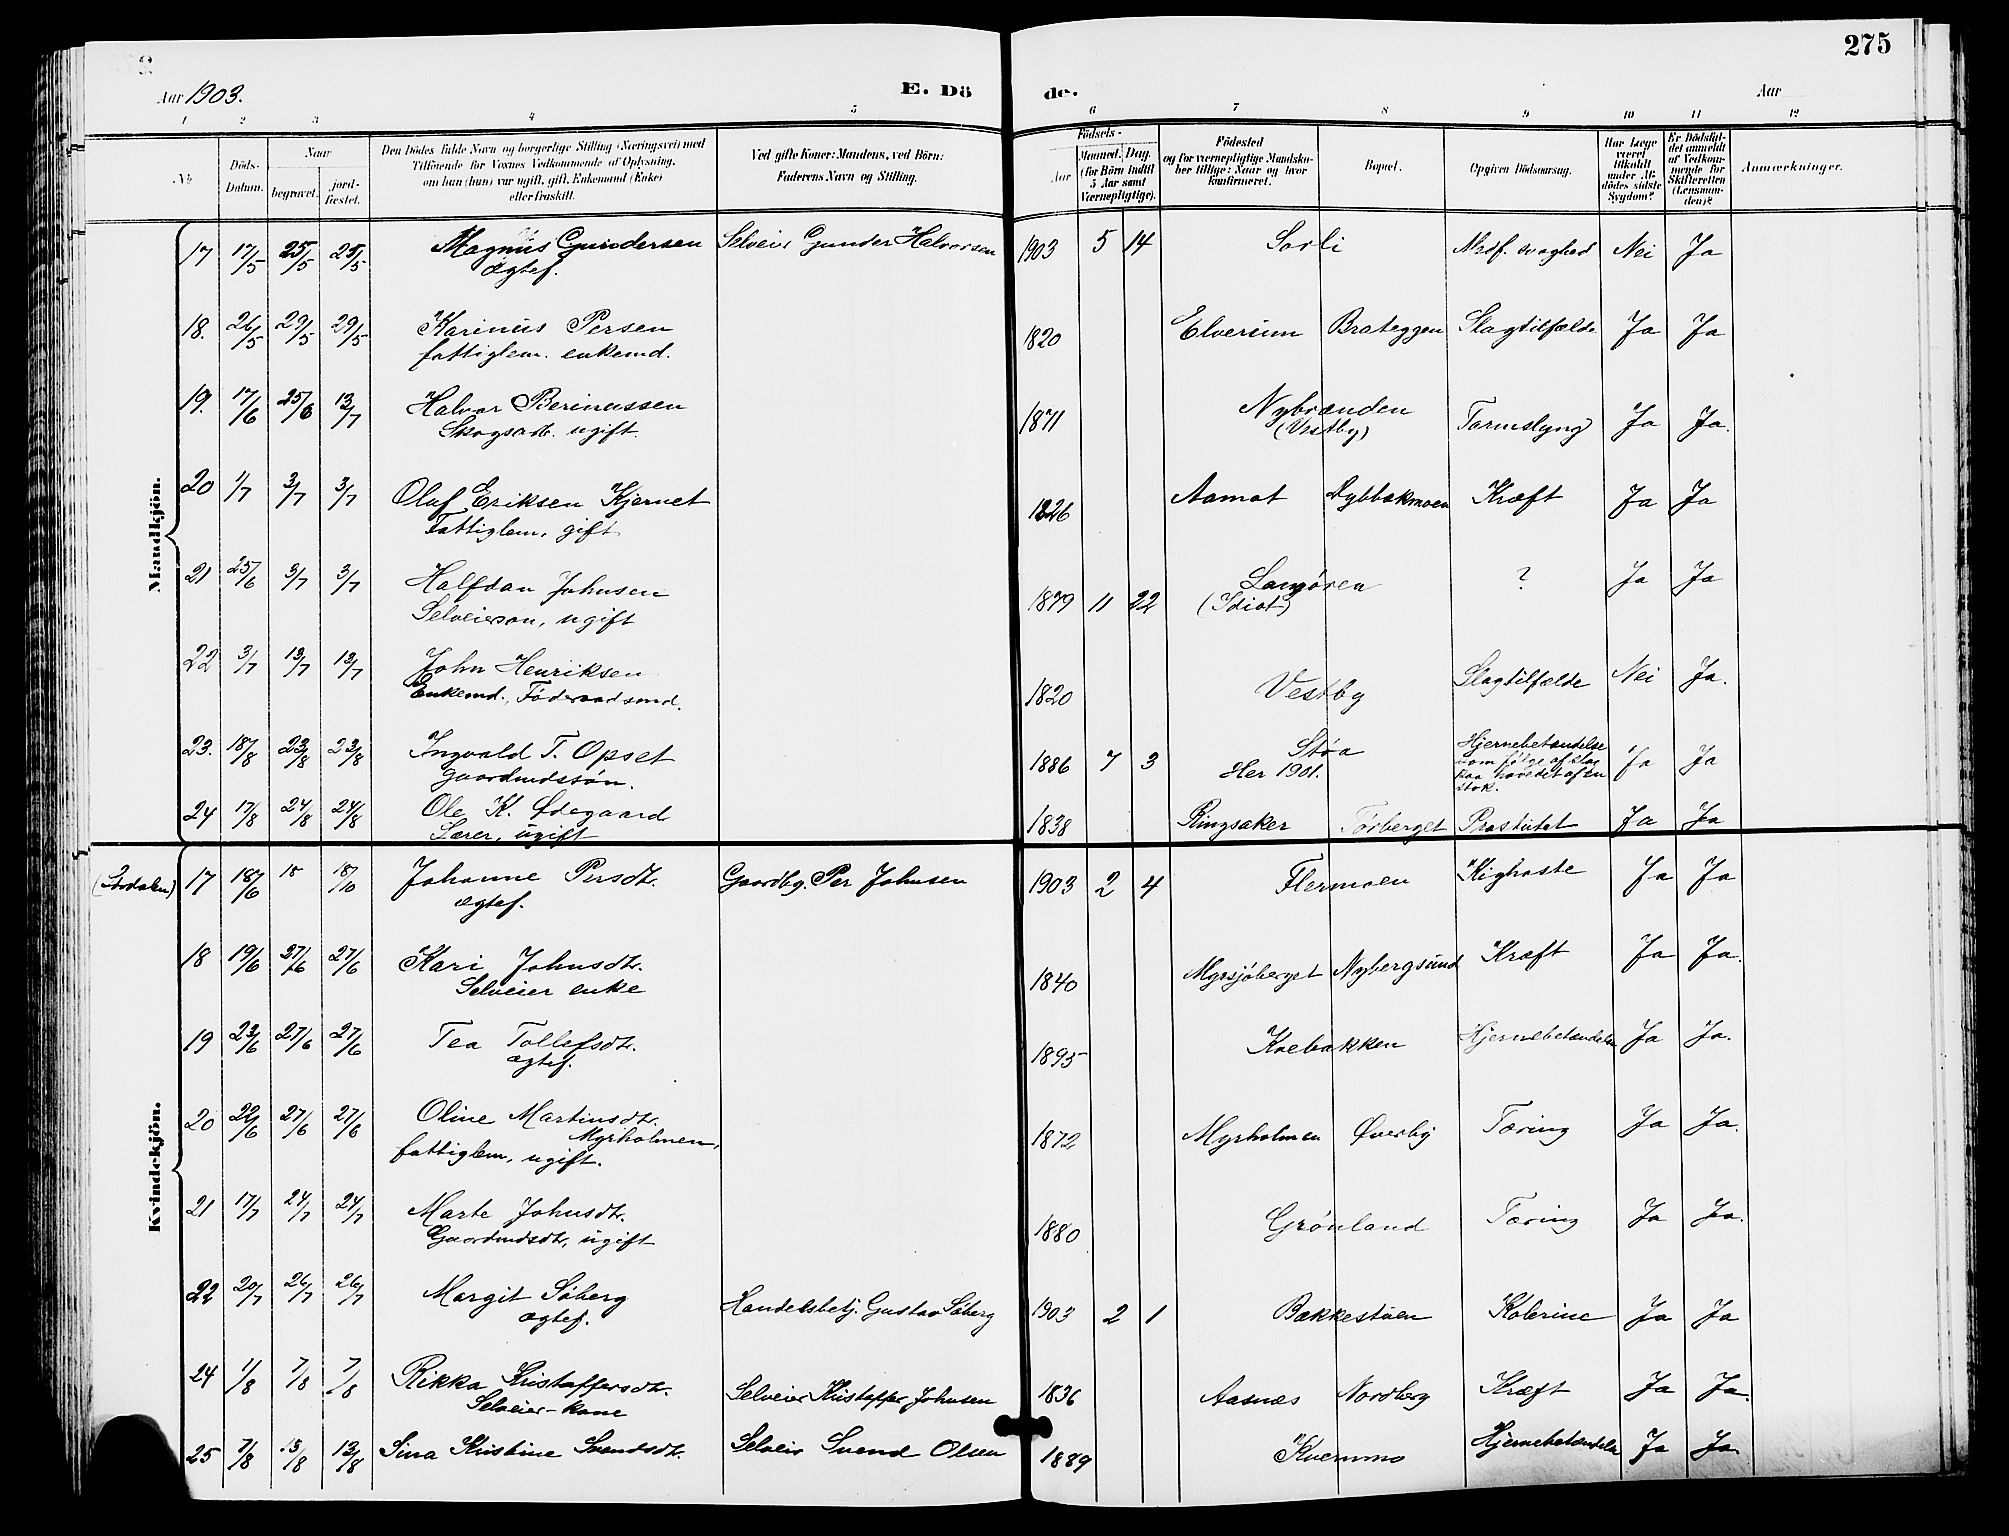 275
Aar 1903.
E. Dö
de.
Aar
1 2 3 4 5 6 7 8 9 10 11 12
№
Döds-
Datum.
Naar
begravet.
jord-
fæstet.
Den Dödes fulde Navn og borgerlige Stilling (Næringsvei) med
Tilföiende for Voxnes Vedkommende af Oplysning,
om han (hun) var ugift, gift, Enkemand (Enke)
eller fraskilt.
Ved gifte Koner: Mandens, ved Börn:
Faderens Navn og Stilling.
Födsels-
Aar
Maaned. Dag.
(for Börn indtil
5 Aar samt
Værnepligtige).
Födested
og for værnepligtige Mandska-
ber tillige: Naar og hvor
konfirmeret.
Bopæl.
Opgiven Dödsaarsag.
Har Læge
været
tilkaldt
under Af-
dödes sidste
Sygdom?
Er Dödsfal-
det anmeldt
af Vedkom-
mende for
Skifteretten
(Lensman-
den)?
Anmærkninger.
Mandkjön.
17 17/5 25/5 25/5 Magnus Gundersen Selveier Gunder Halvorsen 1903 5 14 Sorli Medf. svaghed Nei Ja
ægtef.
18. 26/5 29/5 29/5 Karinus Persen 1820 Elverum Brateggen Slagtilfælde Ja Ja
fattiglem. enkemd.
19. 17/6 25/6 13/7 Halvor Berinussen 1871 Nybrænden Tarmslyng Ja Ja.
Skogsarb. ugift. (Vestby)
20 1/7 3/7 3/7 Oluf Eriksen Kjernet 1826 Aamot Dybbækmoen Kræft Ja Ja
Fattiglem, gift
21 25/6 3/7 3/7 Halfdan Johnsen 1879 11 22 Langören ? Ja Ja
Selveiersøn, ugift (Idiot)
22 3/7 13/7 13/7 John Henriksen 1820 Vestby Slagtilfælde Nei Ja.
Enkemd., Föderaadsmd.
23. 18/8 23/8 23/8 Ingvald T. Opset 1886 7 3 Støa Hjernebetændelse Ja Ja
gaardmdssön. Her 1901. som følge af slag
paa hovedet af en
stok.
24 17/8 24/8 24/8 Ole K. Ødegaard 1838 Ringsaker Törberget Prostatit Ja Ja
Lærer, ugift
Kvindekjön.
17 18/6 18/10 Johanne Persdt. Gaardbg. Per Johnsen 1903 2 4 Flermoen Kighoste Ja Ja
ægtef.
18 19/6 27/6 27/6 Kari Johnsdtr. 1840 Myrsjöberget Nybergsund Kræft Ja Ja.
Selveier enke
19 23/6 27/6 27/6 Tea Tollefsdtr. 1895 Koebakken Hjernebetændelse Ja Ja.
ægtef.
20 22/6 27/6 27/6 Oline Martinsdtr. 1872 Myrholmen Øverby Tæring Ja Ja.
Myrholmen,
fattiglem, ugift.
21 17/7 24/7 24/7 Marte Johnsdtr. 1880 Grönland Tæring Ja Ja.
Gaardmdsdtr, ugift
22 20/7 26/7 26/7 Margit Söberg Handelsbetj. Gustav Söberg 1903 2 1 Bakkestuen Kolerine Ja Ja
ægtef.
24 1/8 7/8 7/8 Rikka Kristoffersdtr. Selveier Kristoffer Johnsen 1836 Aasnes Nordberg Kræft Ja Ja.
Selveier-kone
25 7/8 13/8 13/8 Sina Kristine Svendsdtr. Selveier Svend Olsen 1889 Kvernmo Hjernebetændelse Ja Ja